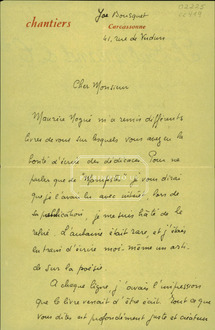 chantiers
Joë Bousquet
Carcassonne
41, rue de Verdun
Cher Monsieur
Maurice Nogué m'a remis différents
livres de vous sur lesquels vous avez eu la
bonté d'écrire des dédicaces. Pour ne
parler que de je vous dirai
que je l'avais lu avec avidité. Lors de
sa publication, je me suis hâté de le
relire. L' était rare, et j'étais
en train d'écrire moi-même un arti-
cle sur la poésie.
A chaque ligne j'avais l'impression
que le livre venait d'être écrit. Tout ce que
vous dites est profondément juste et créateur